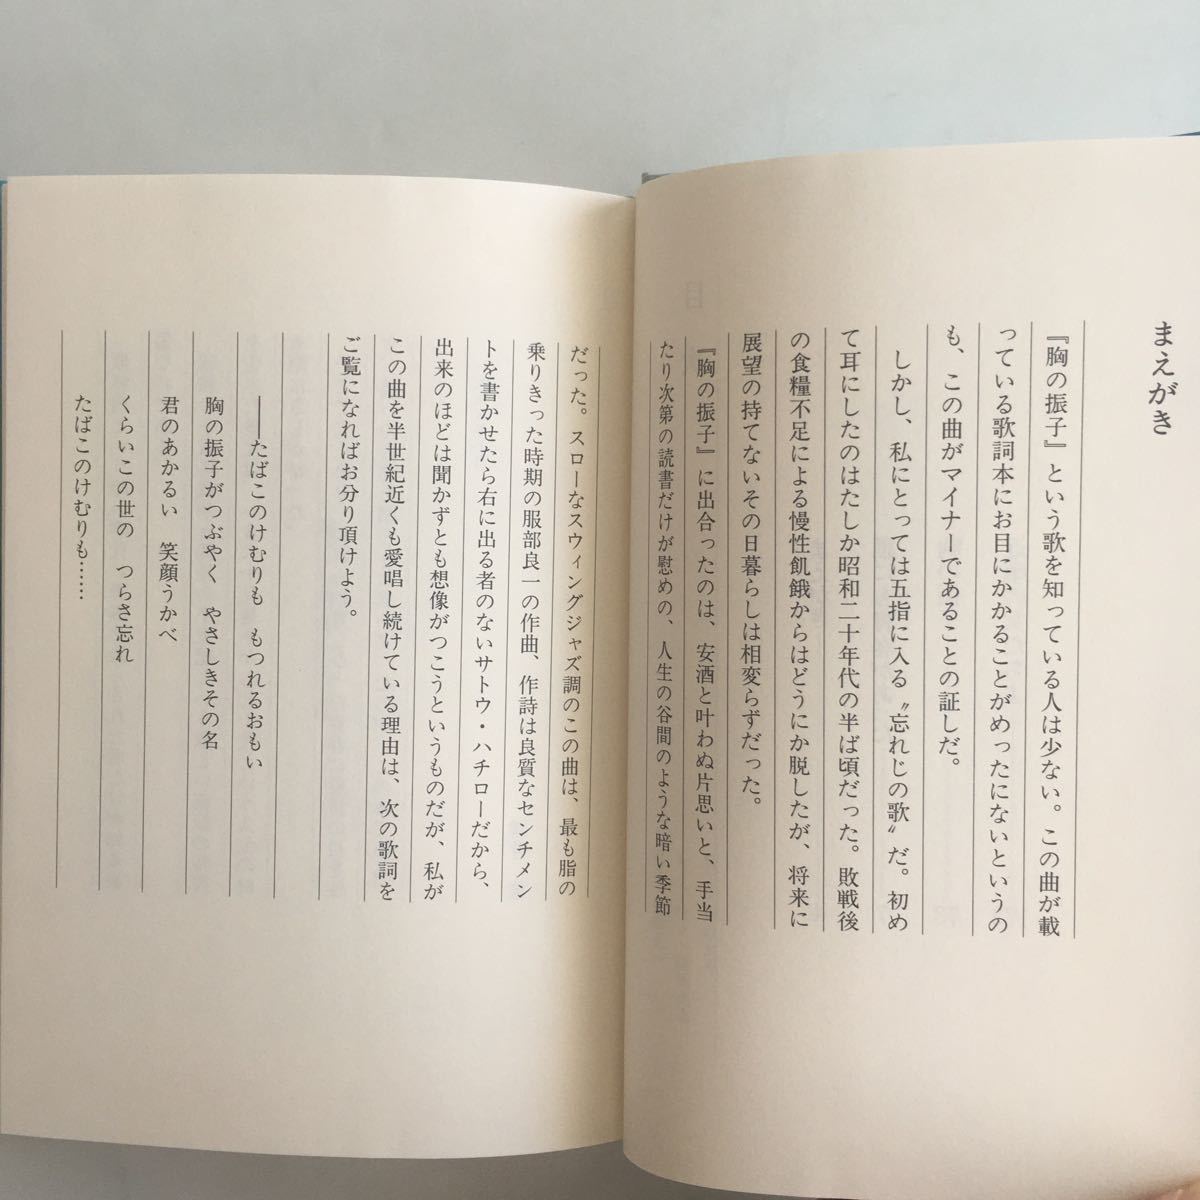 まえがき
『胸の振子』という歌を知っている人は少ない。この曲が載
っている歌詞本にお目にかかることがめったにないというの
も、この曲がマイナーであることの証しだ。
しかし、私にとっては五指に入る〝忘れじの歌〟だ。初め
て耳にしたのはたしか昭和二十年代の半ば頃だった。敗戦後
の食糧不足による慢性飢餓からはどうにか脱したが、将来に
展望の持てないその日暮らしは相変らずだった。
『胸の振子』に出合ったのは、安酒と叶わぬ片思いと、手当
たり次第の読書だけが慰めの、人生の谷間のような暗い季節
だった。スローなスウィングジャズ調のこの曲は、最も脂の
乗りきった時期の服部良一の作曲、作詩は良質なセンチメン
トを書かせたら右に出る者のないサトウ・ハチローだから、
出来のほどは聞かずとも想像がつこうというものだが、私が
この曲を半世紀近くも愛唱し続けている理由は、次の歌詞を
ご覧になればお分り頂けよう。
──たばこのけむりも　もつれるおもい
胸の振子がつぶやく　やさしきその名
君のあかるい　笑顔うかべ
くらいこの世の　つらさ忘れ
たばこのけむりも……